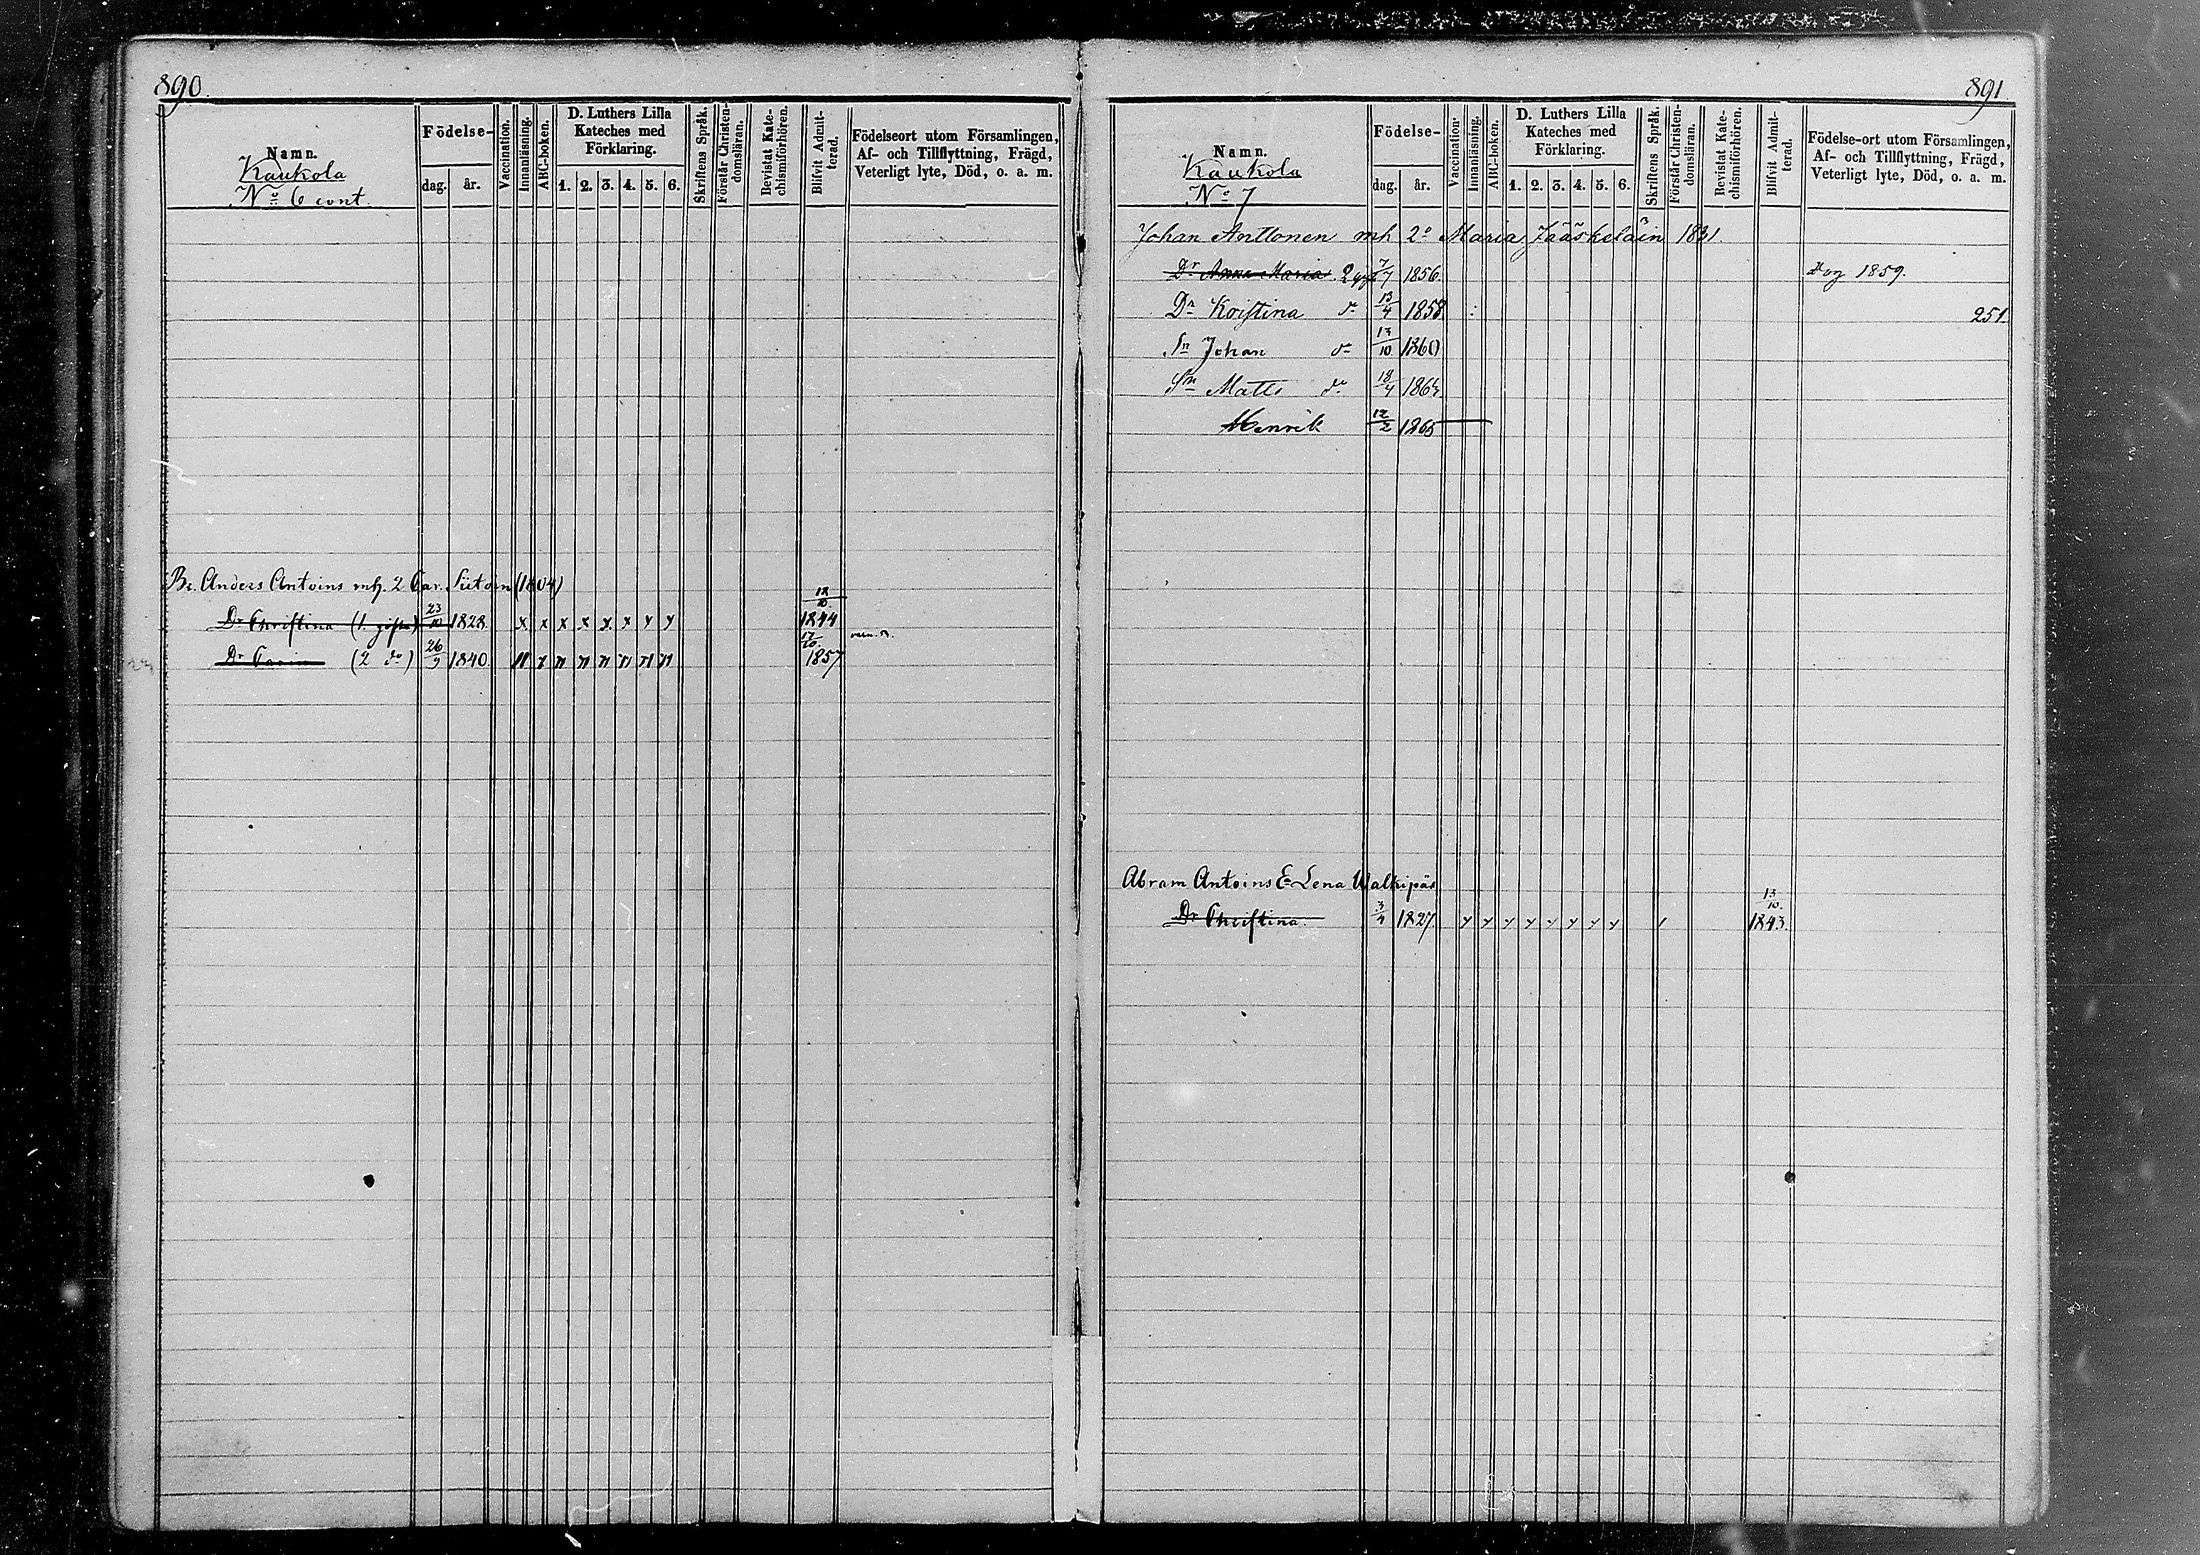 890.
Namn.
Kaukola
No 6 cont.
Födelse-
dag. år.
Vaccination.
Innanläsning.
ABC-boken.
D. Luthers Lilla
Kateches med
Förklaring.
1. 2. 3. 4. 5. 6.
Skriftens Språk.
Förstår Christen-
domsläran.
Bevistat Kate-
chismiförhören.
Blifvit Admit-
terad.
Födelseort utom Församlingen,
Af- och Tillflyttning, Frägd,
Veterligt lyte, Död, o. a. m.
Br. Anders Antoins mh. 2 Car. Siitoin (1804)
Dr Christina (1. gifte) 23/10 1828 x x x x x x y y 18/10 1844
Dr Carin (2 do) 26/9 1840 1857
891
Namn.
Kaukola
No 7
Födelse-
dag. år.
Vaccination.
Innanläsning.
ABC-boken.
D. Luthers Lilla
Kateches med
Förklaring.
1. 2. 3. 4. 5. 6.
Skriftens Språk.
Förstår Christen-
domsläran.
Bevistat Kate-
chismiförhören.
Blifvit Admit-
terad.
Födelse-ort utom Församlingen,
Af- och Tillflyttning, Frägd,
Veterligt lyte, Död, o. a. m.
Johan Anttonen mh 2o Maria Jääskeläin 1831.
Dr Anna Maria 2 7/7 1856. Dog 1859.
Dr Kristina do 13/4 1858 251.
Sn Johan do 13/10 1860
Sn Matts do 18/4 186
Henrik 12/2 1865
Abram Antoins E. Lena Walkipää
Dr Christina. 3/4 1827. y y y y y y y y / 13/10. 1843.